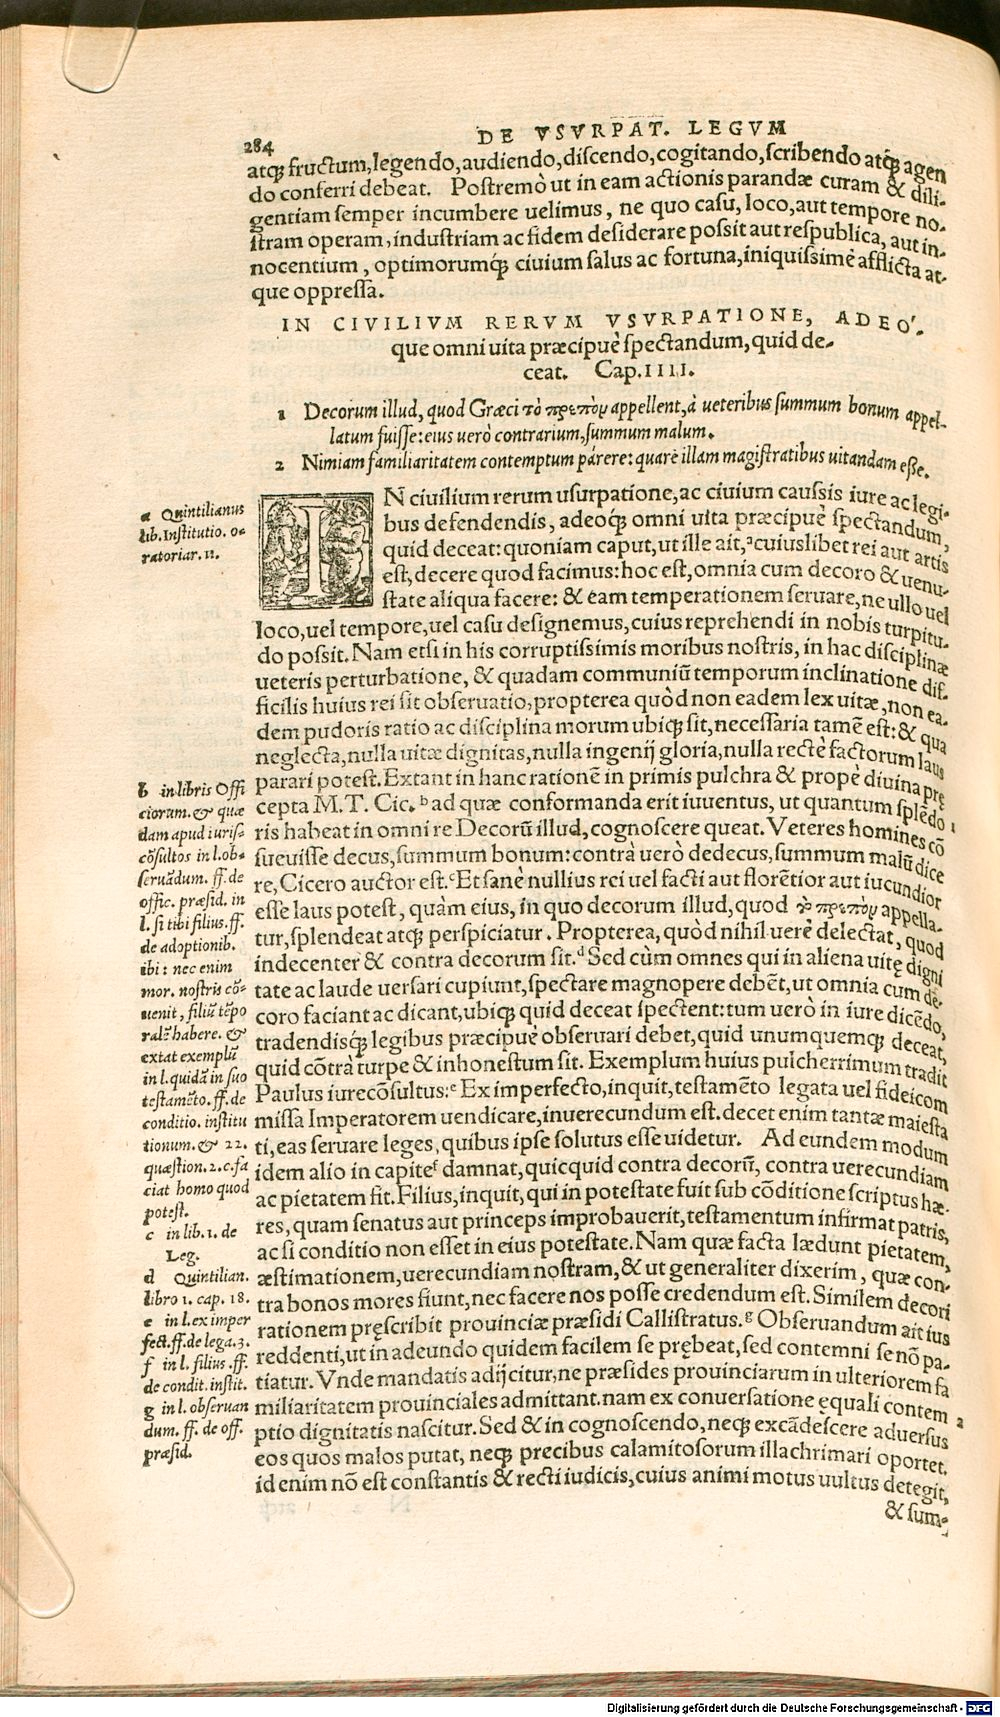 284
DE VSVRPAT. LEGVM
atq́ꝫ fructum, legendo, audiendo, discendo, cogitando, scribendo atq́ꝫ agen
do conferri debeat. Postremò ut in eam actionis parandæ curam & dili-
gentiam semper incumbere uelimus, ne quo casu, loco, aut tempore no-
stram operam, industriam ac fidem desiderare possit aut respublica, aut in-
nocentium, optimorumq́ꝫ ciuium salus ac fortuna, iniquissimè afflicta at-
que oppressa.
IN CIVILIVM RERVM VSVRPATIONE, ADEO'-
que omni uita præcipuè spectandum, quid de-
ceat. Cap. IIII.
1 Decorum illud, quod Græci τὸ πρεπὸν appellent, à ueteribus summum bonum appel-
latum fuisse: eius uerò contrarium, summum malum.
2 Nimiam familiaritatem contemptum párere: quare illam magistratibus uitandam esse.
IN ciuilium rerum usurpatione, ac ciuium caussis iure ac legi-
bus defendendis, adeoq́ꝫ omni uita præcipuè spectandum,
quid deceat: quoniam caput, ut ille ait, ᵃ cuiuslibet rei aut artis
est, decere quod facimus: hoc est, omnia cum decoro & uenu-
state aliqua facere: & eam temperationem seruare, ne ullo uel
loco, uel tempore, uel casu designemus, cuius reprehendi in nobis turpitu-
do possit. Nam etsi in his corruptissimis moribus nostris, in hac disciplinæ
ueteris perturbatione, & quadam communiũ temporum inclinatione dif-
ficilis huius rei sit obseruatio, propterea quòd non eadem lex uitæ, non ea-
dem pudoris ratio ac disciplina morum ubiqꝫ sit, necessaria tamẽ est: & qua
neglecta, nulla uitæ dignitas, nulla ingenij gloria, nulla rectè factorum laus
parari potest. Extant in hanc rationẽ in primis pulchra & propè diuina prę
cepta M. T. Cic. ᵇ ad quæ conformanda erit iuuentus, ut quantum splẽdo
ris habeat in omni re Decorũ illud, cognoscere queat. Veteres homines cõ 1
sueuisse decus, summum bonum: contrà uerò dedecus, summum malũ dice
re, Cicero auctor est. ᶜ Et sanè nullius rei uel facti aut florẽtior aut iucundior
esse laus potest, quàm eius, in quo decorum illud, quod τὸ πρεπὸν appella-
tur, splendeat atqꝫ perspiciatur. Propterea, quòd nihil uerè delectat, quod
indecenter & contra decorum sit. ᵈ Sed cùm omnes qui in aliena uitę digni
tate ac laude uersari cupiunt, spectare magnopere debẽt, ut omnia cum de-
coro faciant ac dicant, ubiqꝫ quid deceat spectent: tum uerò in iure dicẽdo,
tradendisq́ꝫ legibus præcipuè obseruari debet, quid unumquemqꝫ deceat,
quid cõtrà turpe & inhonestum sit. Exemplum huius pulcherrimum tradit
Paulus iurecõsultus: ᵉ Ex imperfecto, inquit, testamẽto legata uel fideicom
missa Imperatorem uendicare, inuerecundum est. decet enim tantæ maiesta
ti, eas seruare leges, quibus ipse solutus esse uidetur. Ad eundem modum
idem alio in capite ᶠ damnat, quicquid contra decorũ, contra uerecundiam
ac pietatem fit. Filius, inquit, qui in potestate fuit sub cõditione scriptus hæ-
res, quam senatus aut princeps improbauerit, testamentum infirmat patris,
ac si conditio non esset in eius potestate. Nam quæ facta lædunt pietatem,
æstimationem, uerecundiam nostram, & ut generaliter dixerim, quæ con-
tra bonos mores fiunt, nec facere nos posse credendum est. Similem decori
rationem pręscribit prouinciæ præsidi Callistratus. ᵍ Obseruandum ait ius
reddenti, ut in adeundo quidem facilem se prębeat, sed contemni se nõ pa-
tiatur. Vnde mandatis adijcitur, ne præsides prouinciarum in ulteriorem fa
miliaritatem prouinciales admittant. nam ex conuersatione ęquali contem 2
ptio dignitatis nascitur. Sed & in cognoscendo, neqꝫ excãdescere aduersus
eos quos malos putat, neqꝫ precibus calamitosorum illachrimari oportet.
id enim nõ est constantis & recti iudicis, cuius animi motus uultus detegit,
& sum-
a Quintilianus
lib. Institutio. o-
ratoriar. 11.
b in libris Offi
ciorum. & quæ
dam apud iurisc-
cõsultos in l. ob-
seruãdum. ff. de
offic. præsid. in
l. si tibi filius. ff.
de adoptionib.
ibi: nec enim
mor. nostris cõ-
uenit, filiũ tẽpo
ralẽ habere. &
extat exemplũ
in l. quidã in suo
testamẽto. ff. de
conditio. institu
tionum. & 22.
quæstion. 2. c. fa
ciat homo quod
potest.
c in lib. 1. de
Leg.
d Quintilian.
libro 1. cap. 18.
e in l. ex imper
fect. ff. de lega. 3.
f in l. filius. ff.
de condit. instit.
g in l. obseruan
dum. ff. de off.
præsid.
Digitalisierung gefördert durch die Deutsche Forschungsgemeinschaft - DFG